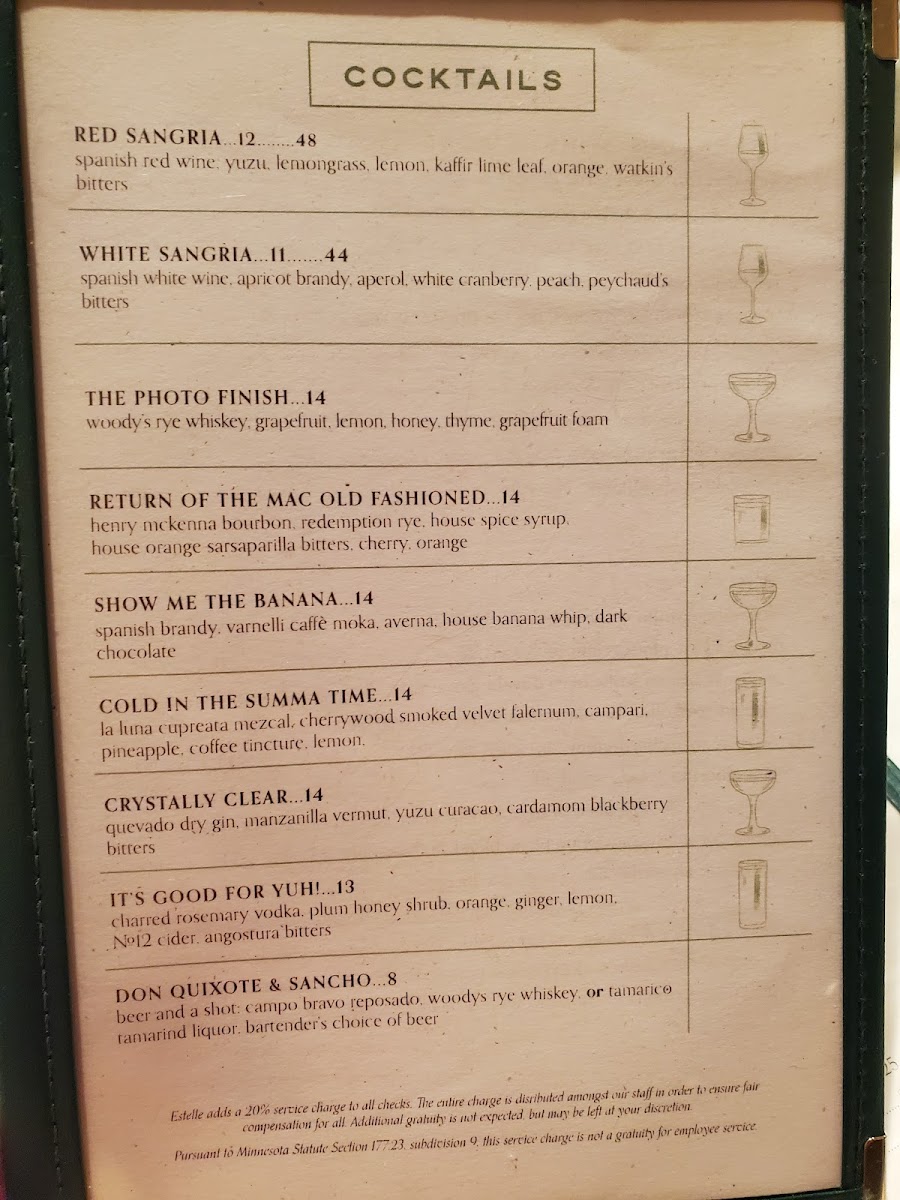 COCKTAILS
RED SANGRIA...12........48
spanish red wine, yuzu, lemongrass, lemon, kaffir lime leaf, orange, watkin's
bitters
WHITE SANGRIA...11.......44
spanish white wine, apricot brandy, aperol, white cranberry, peach, peychaud's
bitters
THE PHOTO FINISH...14
woody's rye whiskey, grapefruit, lemon, honey, thyme, grapefruit foam
RETURN OF THE MAC OLD FASHIONED...14
henry mckenna bourbon, redemption rye, house spice syrup,
house orange sarsaparilla bitters, cherry, orange
SHOW ME THE BANANA...14
spanish brandy, varnelli caffè moka, averna, house banana whip, dark
chocolate
COLD IN THE SUMMA TIME...14
la luna cupreata mezcal, cherrywood smoked velvet falernum, campari,
pineapple, coffee tincture, lemon,
CRYSTALLY CLEAR...14
quevado dry gin, manzanilla vermut, yuzu curacao, cardamom blackberry
bitters
IT'S GOOD FOR YUH!...13
charred rosemary vodka, plum honey shrub, orange, ginger, lemon,
Nº12 cider, angostura bitters
DON QUIXOTE & SANCHO...8
beer and a shot: campo bravo reposado, woodys rye whiskey, or tamarico
tamarind liquor, bartender's choice of beer
Estelle adds a 20% service charge to all checks. The entire charge is disributed amongst our staff in order to ensure fair
compensation for all. Additional gratuity is not expected, but may be left at your discretion.
Pursuant to Minnesota Statute Section 177.23, subdivision 9, this service charge is not a gratuity for employee service.